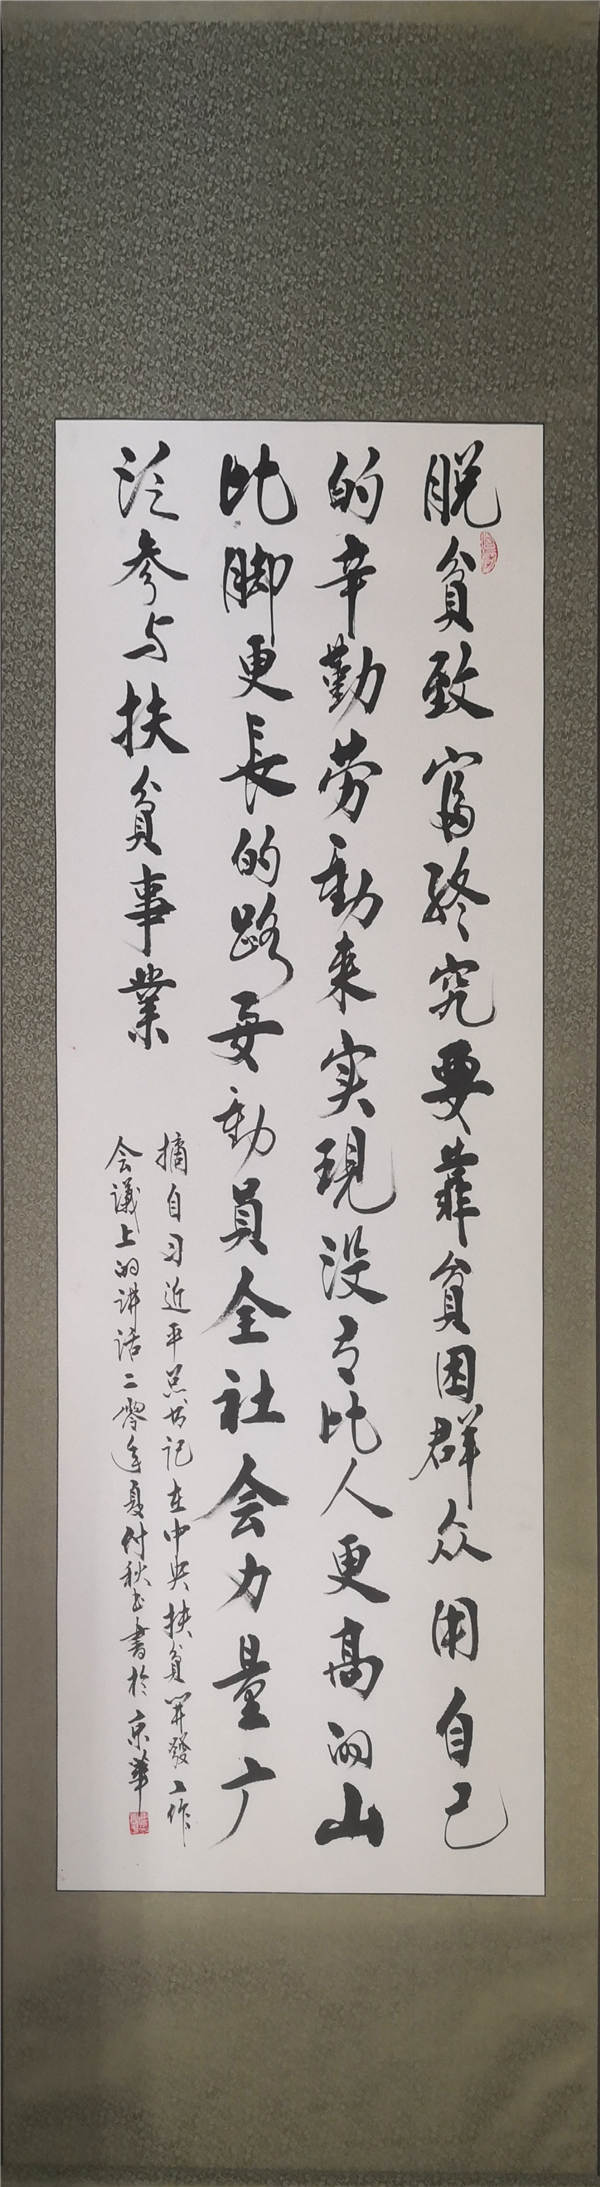 脱贫致富终究要靠贫困群众用自己
的辛勤劳動来实現没有比人更高的山
比脚更長的路要動員全社会力量广
泛参与扶贫事業
摘自习近平总书记在中央扶贫開發工作
会議上的讲话二零年夏付秋生書於京華